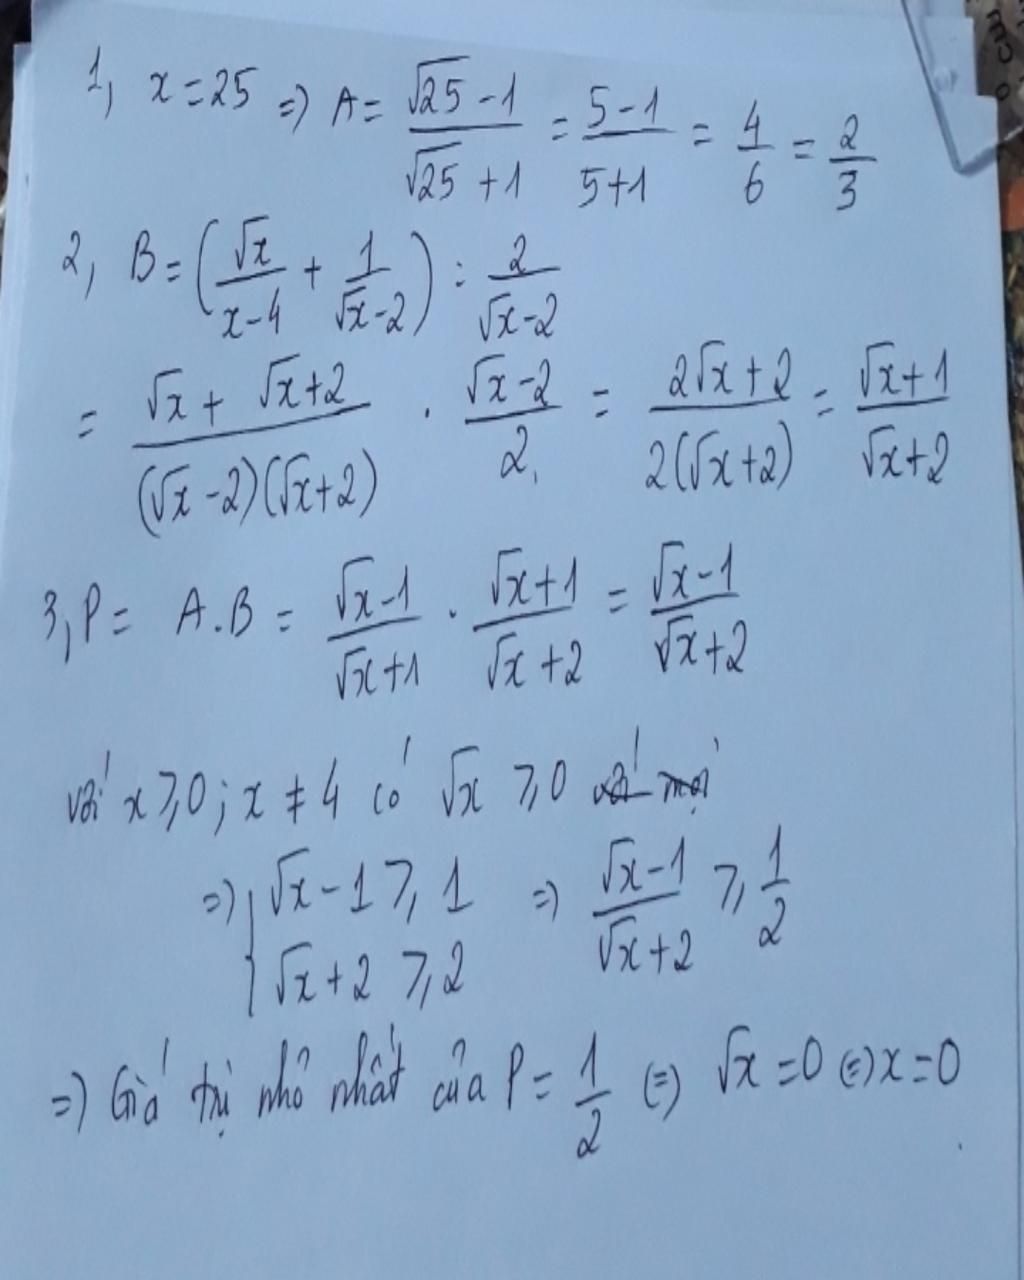 1, x = 25 => A = (√25 - 1)/(√25 + 1) = (5-1)/(5+1) = 4/6 = 2/3
2, B = (√x/(x-4) + 1/(√x-2)) : 2/(√x-2)
= (√x + √x+2)/((√x-2)(√x+2)) . (√x-2)/2 = (2√x+2)/(2(√x+2)) = (√x+1)/(√x+2)
3, P = A.B = (√x-1)/(√x+1) . (√x+1)/(√x+2) = (√x-1)/(√x+2)
với x ≥ 0; x ≠ 4 có √x ≥ 0 với mọi
=> { √x - 1 ≥ 1 => (√x-1)/(√x+2) ≥ 1/2
√x + 2 ≥ 2
=> Giá trị nhỏ nhất của P = 1/2 (=) √x = 0 (=) x = 0